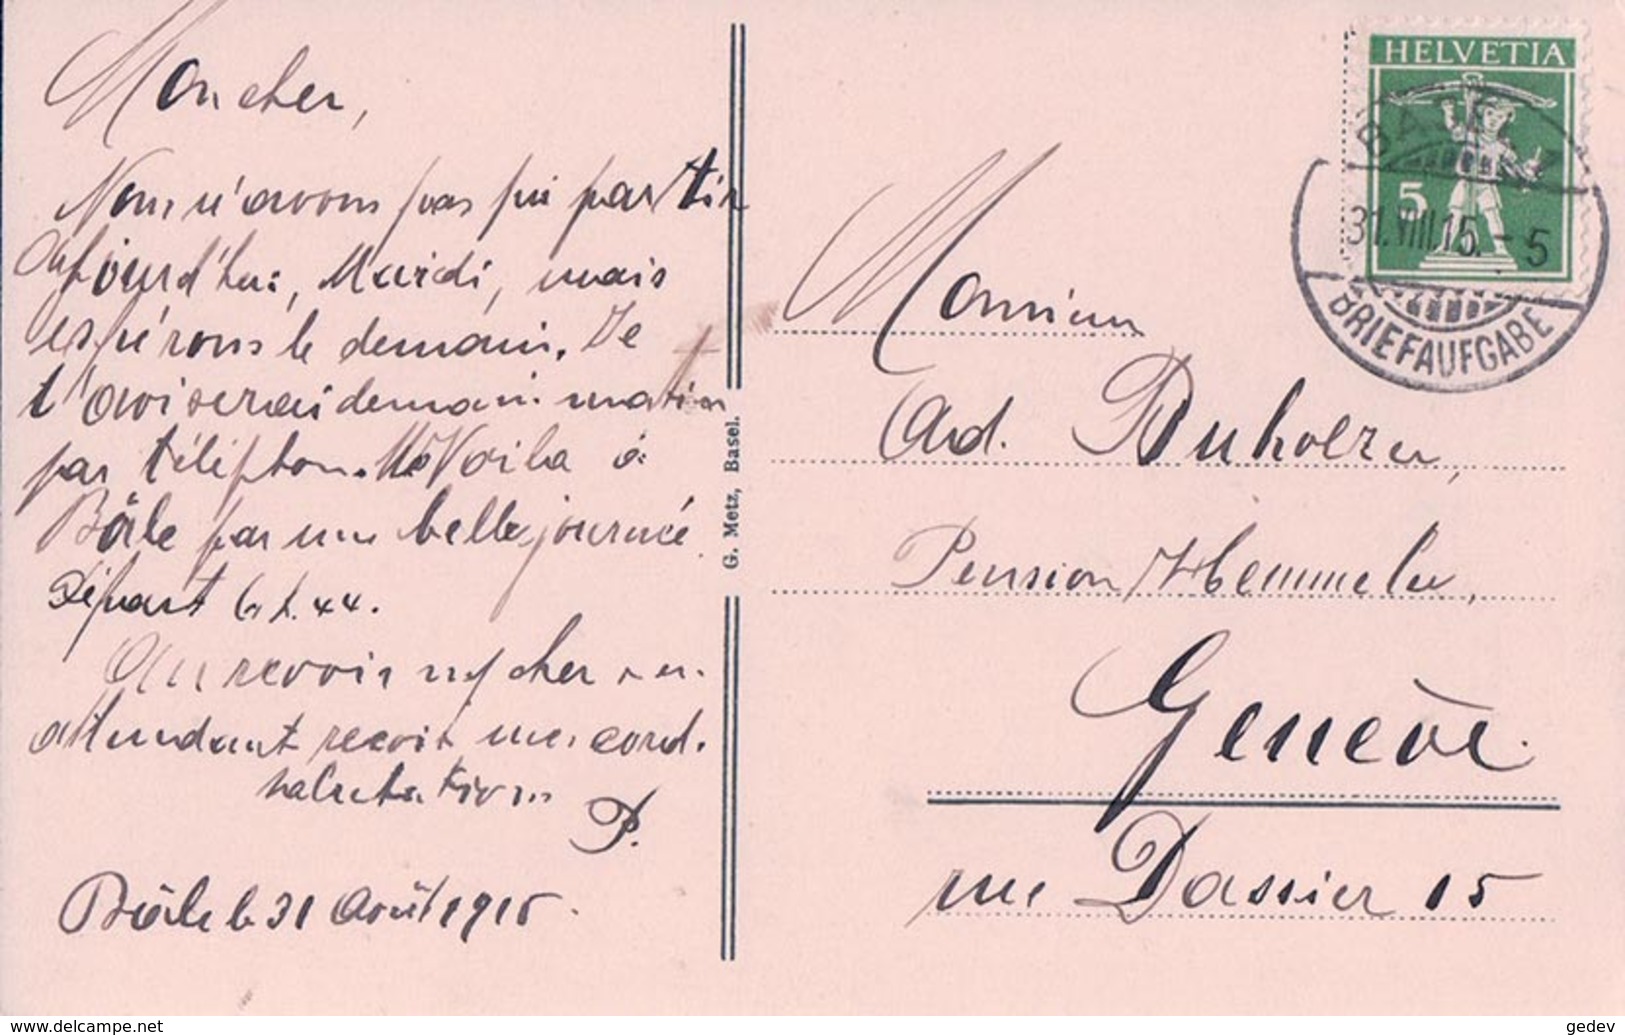 Mon cher,
Nous n'avons pas pu partir
aujourd'hui, Mardi, mais
espérons le demain. Je
t'aviserai demain matin
par téléphon. Voila à
Bâle par une belle journée
Départ 6 h. 44.
Au revoir cher en
attendant reçoit mes cord.
salutations
P.
Bâle le 31 Août 1915.
G. Metz, Basel.
HELVETIA
5
BASEL 1
31.VIII.15.-5
BRIEFAUFGABE
Monsieur
Ad. Buholzer,
Pension Hemmeler,
Genève.
rue Dassier 15
www.delcampe.net
gedev